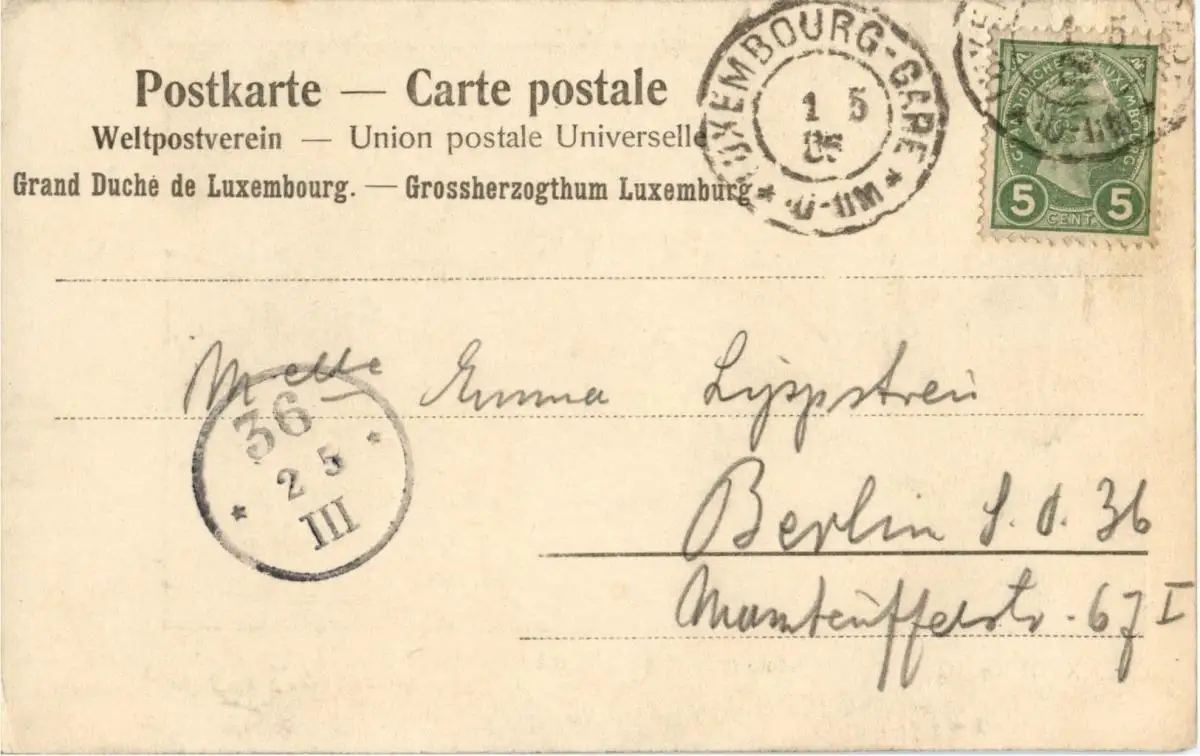 Postkarte — Carte postale
Weltpostverein — Union postale Universelle
Grand Duché de Luxembourg. — Grossherzogthum Luxemburg.
LUXEMBOURG-GARE
1 5
05
GRAND DUCHÉ DE LUXEMBOURG
5 CENT. 5
1 5
Melle Emma
36
2 5
III
Berlin S. O. 36
Manteuffelstr. 67 I